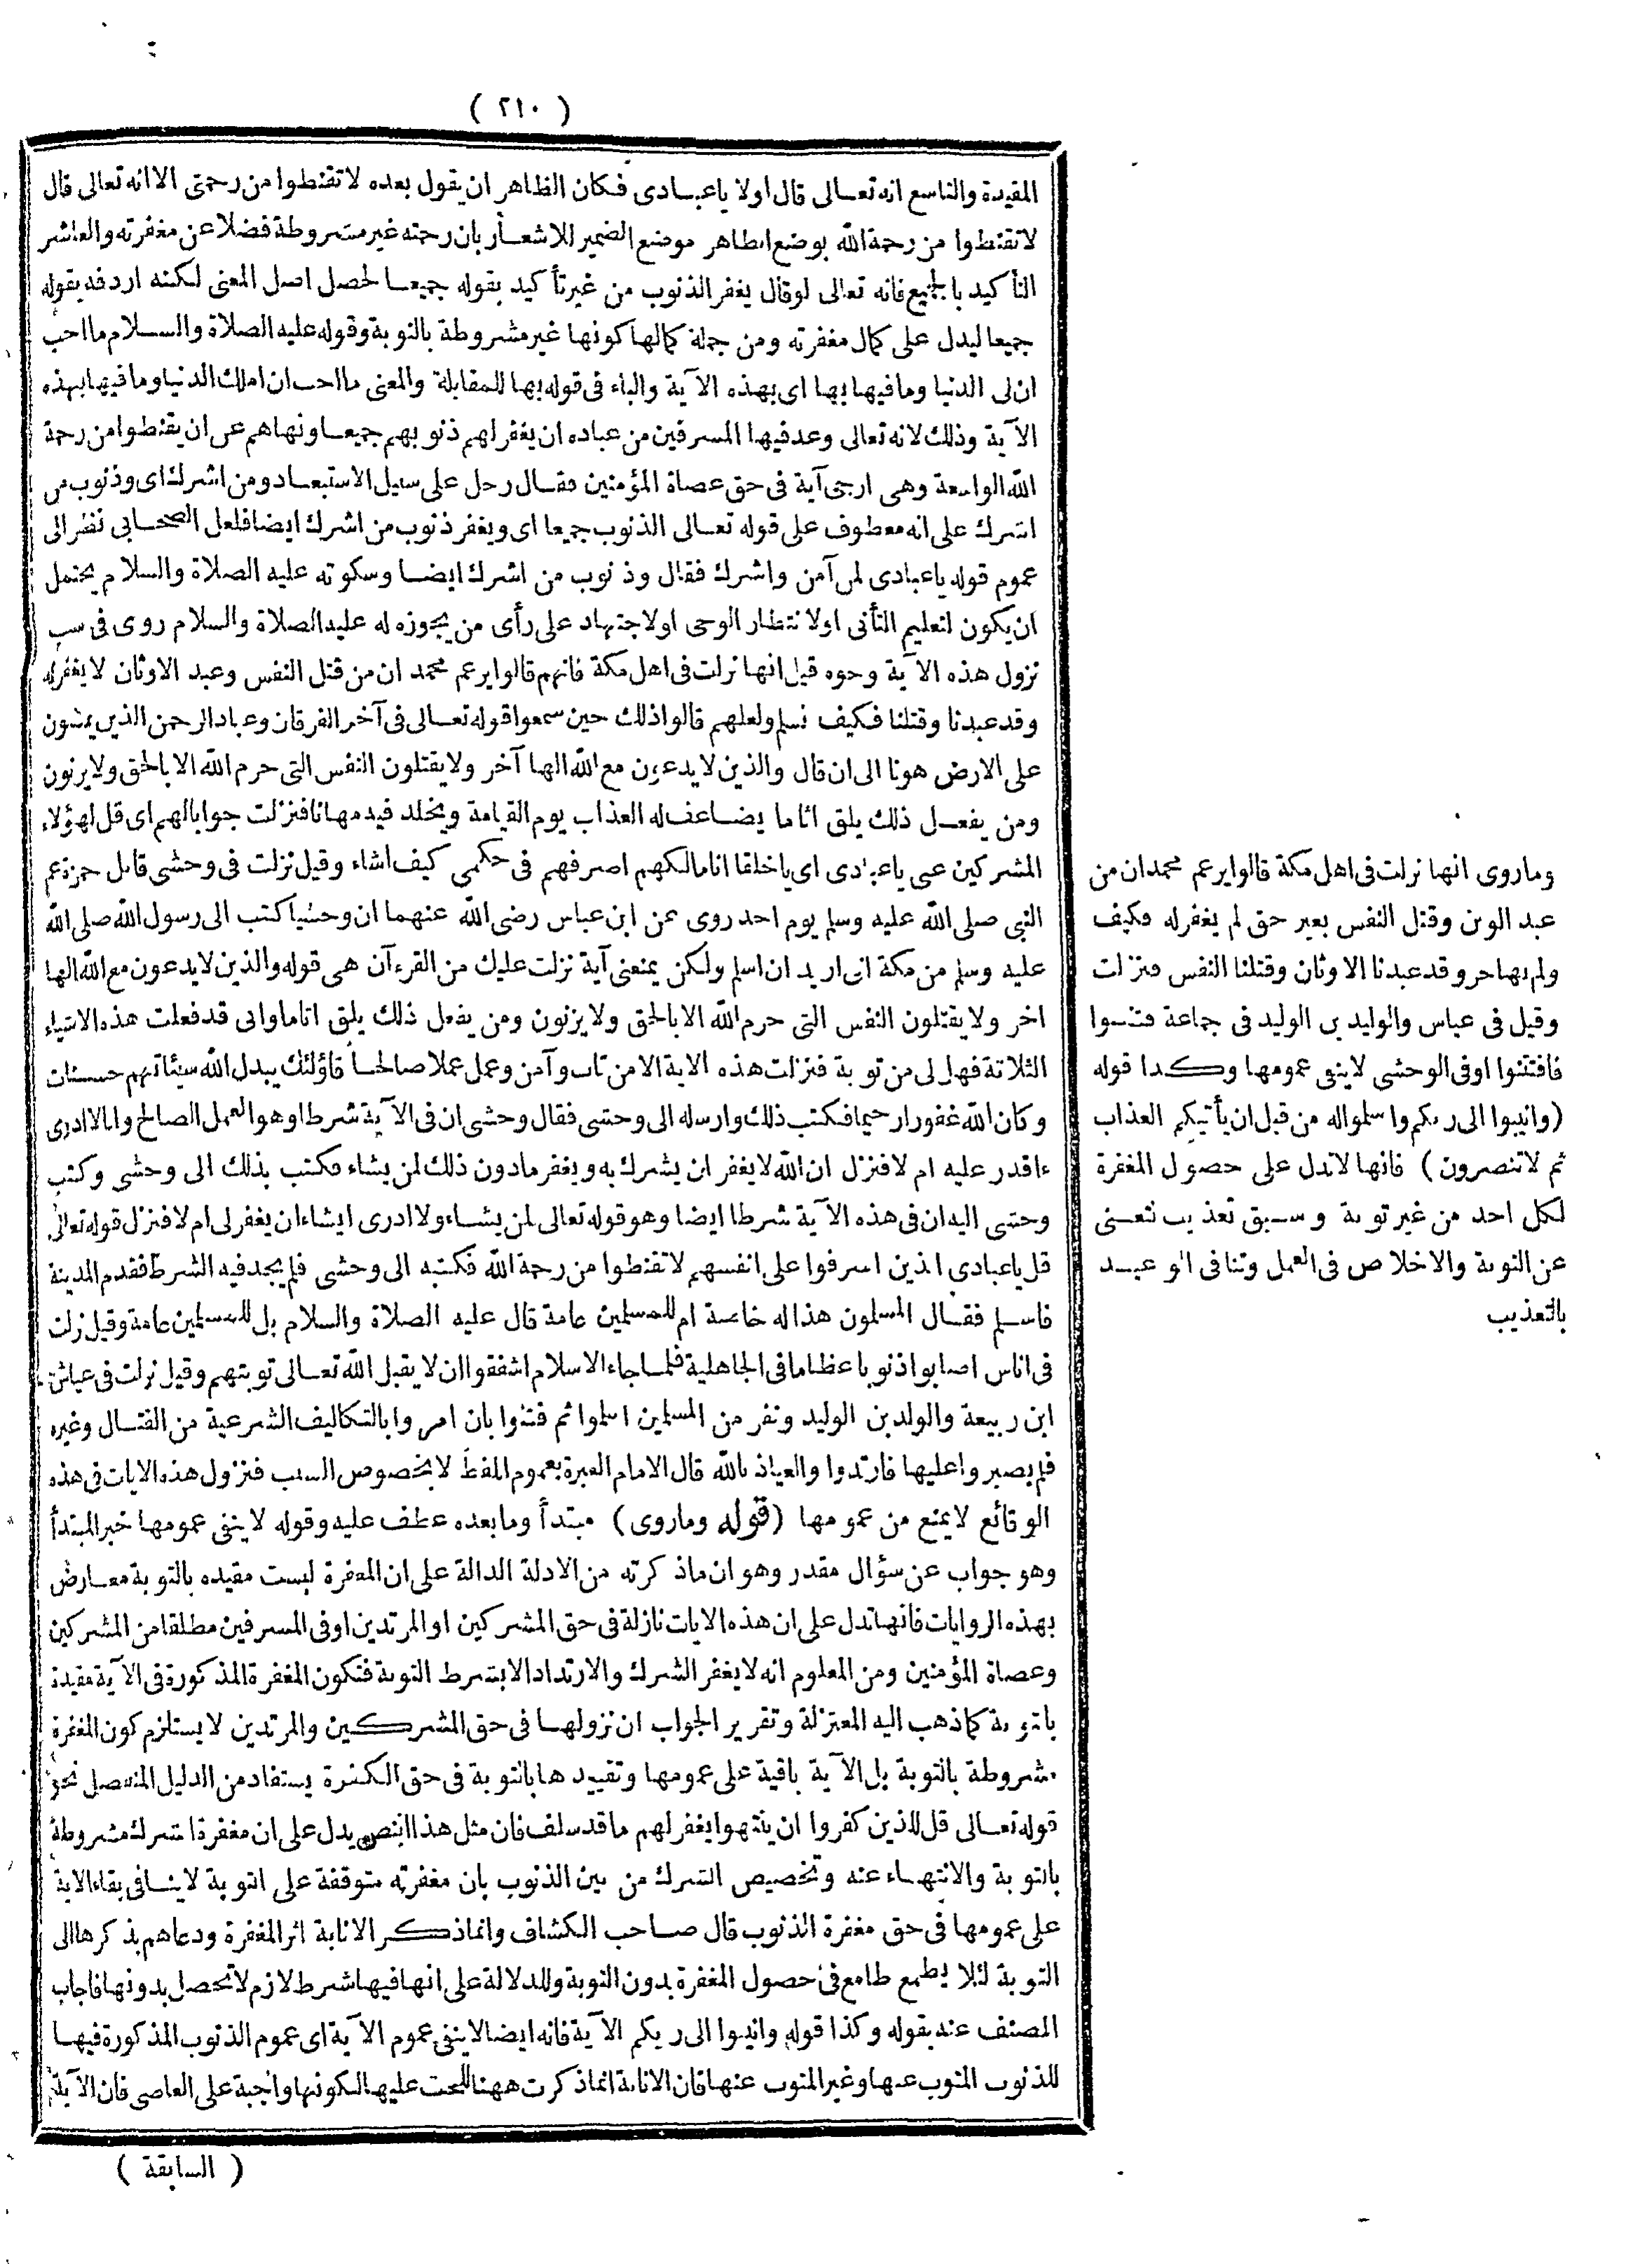 ( ٢١٠ )
المقيدة والتاسع انه تعالى قال اولا ياعبادى فكان الظاهر ان يقول بعده لا تقنطوا من رحمتى الا انه تعالى قال
لا تقنطوا من رحمة الله بوضع الظاهر موضع الضمير للاشعار بان رحمته غير مشروطة فضلا عن مغفرته والعاشر
التأكيد بالجميع فانه تعالى لو قال يغفر الذنوب من غير تأكيد بقوله جميعا لحصل اصل المعنى لكنه اردفه بقوله
جميعا ليدل على كمال مغفرته ومن جملة كمالها كونها غير مشروطة بالتوبة وقوله عليه الصلاة والسلام ما احب
ان لى الدنيا وما فيها بها اى بهذه الآية والباء فى قوله بها للمقابلة والمعنى ما احب ان املك الدنيا وما فيها بهذه
الآية وذلك لانه تعالى وعد فيها المسرفين من عباده ان يغفر لهم ذنوبهم جميعا ونهاهم عن ان يقنطوا من رحمة
الله الواسعة وهى ارجى آية فى حق عصاة المؤمنين فقال رجل على سبيل الاستبعاد ومن اشرك اى وذنوب من
اشرك على انه معطوف على قوله تعالى الذنوب جميعا اى ويغفر ذنوب من اشرك ايضا فلعل الصحابى نظر الى
عموم قوله ياعبادى لمن آمن واشرك فقال وذنوب من اشرك ايضا وسكوته عليه الصلاة والسلام يحتمل
ان يكون لتعليم التأنى اولا نتظار الوحى اولا جتهاد على رأى من يجوزه له عليه الصلاة والسلام روى فى سبب
نزول هذه الآية وجوه قيل انها نزلت فى اهل مكة فانهم قالوا يزعم محمد ان من قتل النفس وعبد الاوثان لا يغفر له
وقد عبدنا وقتلنا فكيف نسلم ولعلهم قالوا ذلك حين سمعوا قوله تعالى فى آخر الفرقان وعباد الرحمن الذين يمشون
على الارض هونا الى ان قال والذين لا يدعون مع الله الها آخر ولا يقتلون النفس التى حرم الله الا بالحق ولا يزنون
ومن يفعل ذلك يلق اثاما يضاعف له العذاب يوم القيامة ويخلد فيه مهانا فنزلت جوابا لهم اى قل لهؤلاء
المشركين عنى ياعبادى اى ياخلقا انا مالكهم اصرفهم فى حكمى كيف اشاء وقيل نزلت فى وحشى قاتل حمزة عم
النبى صلى الله عليه وسلم يوم احد روى عن ابن عباس رضى الله عنهما ان وحشيا كتب الى رسول الله صلى الله
عليه وسلم من مكة انى اريد ان اسلم ولكن يمنعنى آية نزلت عليك من القرءآن هى قوله والذين لا يدعون مع الله الها
اخر ولا يقتلون النفس التى حرم الله الا بالحق ولا يزنون ومن يفعل ذلك يلق اثاما وانى قد فعلت هذه الاشياء
الثلاثة فهل لى من توبة فنزلت هذه الاية الا من تاب وآمن وعمل عملا صالحا فاؤلئك يبدل الله سيئاتهم حسنات
وكان الله غفورا رحيما فكتب ذلك وارسله الى وحشى فقال وحشى ان فى الآية شرطا وهو العمل الصالح وانا لا ادرى
ءاقدر عليه ام لا فنزل ان الله لا يغفر ان يشرك به ويغفر مادون ذلك لمن يشاء فكتب بذلك الى وحشى وكتب
وحشى اليه ان فى هذه الآية شرطا ايضا وهو قوله تعالى لمن يشاء ولا ادرى ايشاء ان يغفر لى ام لا فنزل قوله تعالى
قل ياعبادى الذين اسرفوا على انفسهم لا تقنطوا من رحمة الله فكتبه الى وحشى فلم يجد فيه الشرط فقدم المدينة
فاسلم فقال المسلمون هذا له خاصة ام للمسلمين عامة قال عليه الصلاة والسلام بل للمسلمين عامة وقيل نزلت
فى اناس اصابوا ذنوبا عظاما فى الجاهلية فلما جاء الاسلام اشفقوا ان لا يقبل الله تعالى توبتهم وقيل نزلت فى عياش
ابن ربيعة والولد بن الوليد ونفر من المسلمين اسلموا ثم فتنوا بان امروا بالتكاليف الشرعية من القتال وغيره
فلم يصبروا عليها فارتدوا والعياذ بالله قال الامام العبرة بعموم اللفظ لا بخصوص السبب فنزول هذه الايات فى هذه
الوقائع لا يمنع من عمومها (قوله وماروى) مبتدأ وما بعده عطف عليه وقوله لا ينفى عمومها خبر المبتدأ
وهو جواب عن سؤال مقدر وهو ان ماذكرته من الادلة الدالة على ان المغفرة ليست مقيده بالتوبة معارض
بهذه الروايات فانها تدل على ان هذه الايات نازلة فى حق المشركين او المرتدين او فى المسرفين مطلقا من المشركين
وعصاة المؤمنين ومن المعلوم انه لا يغفر الشرك والارتداد الا بشرط التوبة فتكون المغفرة المذكورة فى الآية مقيدة
بالتوبة كما ذهب اليه المعتزلة وتقرير الجواب ان نزولها فى حق المشركين والمرتدين لا يستلزم كون المغفرة
مشروطة بالتوبة بل الآية باقية على عمومها وتقييدها بالتوبة فى حق الكفرة يستفاد من الدليل المنفصل نحو
قوله تعالى قل للذين كفروا ان ينتهوا يغفر لهم ما قد سلف فان مثل هذا النص يدل على ان مغفرة الشرك مشروطة
بالتوبة والانتهاء عنه وتخصيص الشرك من بين الذنوب بان مغفرته متوقفة على التوبة لا ينافى بقاء الاية
على عمومها فى حق مغفرة الذنوب قال صاحب الكشاف وانما ذكر الانابة اثر المغفرة ودعاهم بذكرها الى
التوبة لئلا يطمع طامع فى حصول المغفرة بدون التوبة وللدلالة على انها فيها شرط لازم لا تحصل بدونها فاجاب
المصنف عنه بقوله وكذا قوله وانيبوا الى ربكم الآية فانه ايضا لا ينفى عموم الآية اى عموم الذنوب المذكورة فيها
للذنوب المتوب عنها وغير المتوب عنها فان الانابة انما ذكرت ههنا للحث عليها لكونها واجبة على العاصى فان الآية
( السابقة )
وماروى انها نزلت فى اهل مكة قالوا يزعم محمد ان من
عبد الوثن وقتل النفس بغير حق لم يغفر له فكيف
ولم نهاجر وقد عبدنا الاوثان وقتلنا النفس فنزلت
وقيل فى عياس والوليد بن الوليد فى جماعة فتنوا
فافتتنوا اوفى الوحشى لا ينفى عمومها وكذا قوله
(وانيبوا الى ربكم واسلموا له من قبل ان يأتيكم العذاب
ثم لا تنصرون) فانها لا تدل على حصول المغفرة
لكل احد من غير توبة وسبق تعذيب لتغنى
عن التوبة والاخلاص فى العمل وتنافى الوعيد
بالتعذيب